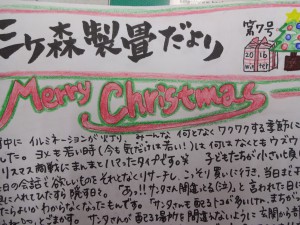 三ヶ森製畳だより
第7号
20 16
Merry Christmas
中に イルミネーションが
何となく ワクワクする季節に
した。ヨメも若い時(今も気だけは若い!)は何はなくともウズウ
リスマス商戦にまんまとハマったタイプです。 子どもたちが小さい頃
日の会話で欲しいものをそれとなくリサーチし、こっそり買いに行き、当日まで
に入れひたすら隠す日々。「あっ!!サンタさん間違えてる(泣)」と言われた日に
たらよいかわからなくなったもんです。サンタさんも配るトコが多いけぇ、まちが
」とごまかす。サンタさんが配る場所を間違えないように玄関から